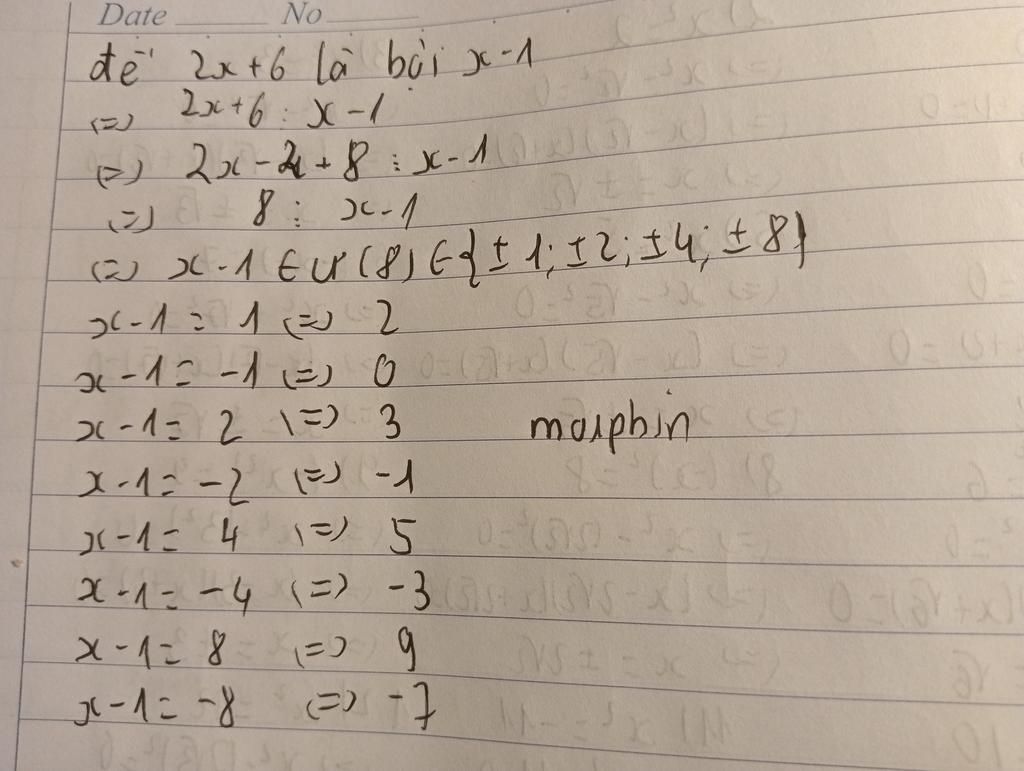 Date No
để 2x+6 là bội x-1
<=> 2x+6 : x-1
<=> 2x-2+8 ⋮ x-1
<=> 8 ⋮ x-1
<=> x-1 ∈ Ư(8) ∈ {±1; ±2; ±4; ±8}
x-1 = 1 <=> 2
x-1 = -1 <=> 0
x-1 = 2 <=> 3 moiphin
x-1 = -2 <=> -1
x-1 = 4 <=> 5
x-1 = -4 <=> -3
x-1 = 8 <=> 9
x-1 = -8 <=> -7